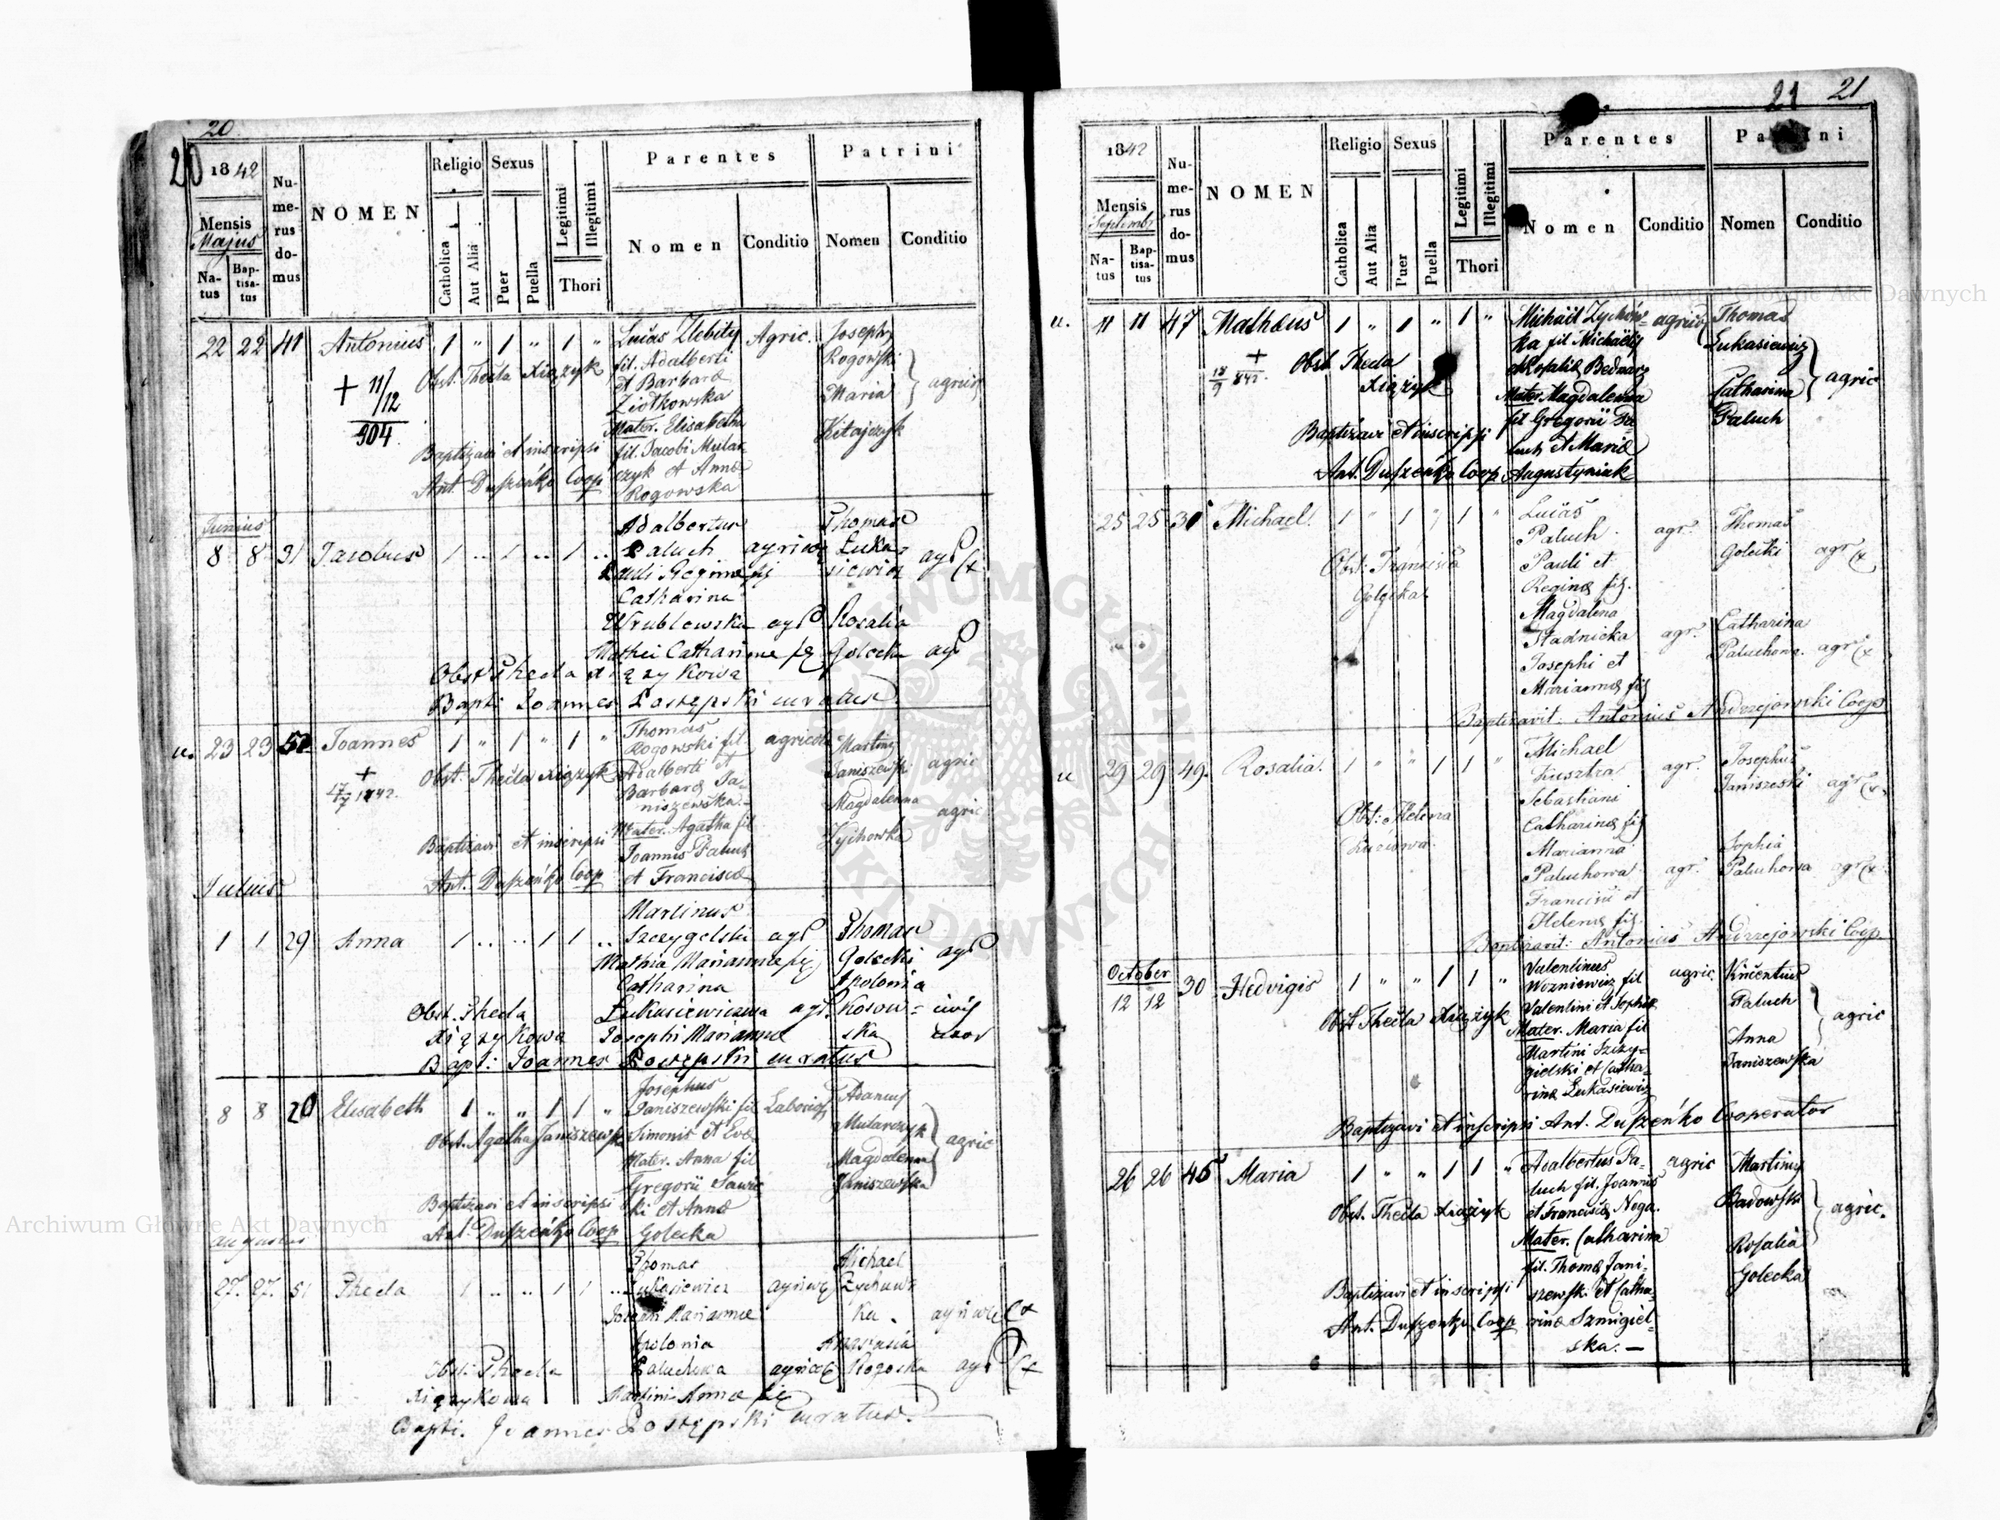 20
20
1842
Mensis
Majus
Natus
Baptisatus
Numerus domus
NOMEN
Religio
Catholica
Aut Alia
Sexus
Puer
Puella
Legitimi
Illegitimi
Thori
Parentes
Nomen
Conditio
Patrini
Nomen
Conditio
22 22 41 Antonius 1 " 1 " 1 "
+ 11/12
904
Obst. Thecla Xiązyk
Baptizavi et inscripsi
Ant. Duszeńko Coop
Lucas Zlebity Agric.
fil. Adalberti
et Barbarae
Ziotkowska
Mater. Elisabetha
fil. Jacobi Mular
czyk et Annae
Rogowska
Joseph
Rogowski
Maria
Kitajczyk
agric
Junius
8 8 31 Jacobus 1 .. 1 .. 1 ..
Adalbertus
Paluch agricol
Pauli Reginae fij
Catharina
Wrublewska agr
Mathei Catharinae
Thomas
Łuka-
siewicz agr
Rosalia
Golecka agr
Obst Thecla Xiązykowa
Bapti Joannes Postępski curatus
u. 23 23 50 Joannes 1 " 1 " 1 "
+
17/7 1842.
Obst. Thecla Xiązyk
Baptizavi et inscripsi
Ant. Duszeńko Coop
Thomas
Rogowski fil agricola
Adalberti et
Barbarae Ja-
niszewska.
Mater. Agatha fil
Joannis Paluch
et Franciscae
Martiny
Janiszewski agric
Magdalenna
Zychowka agric
Julius
1 1 29 Anna 1 .. .. 1 1 ..
Martinus
Szczygelski agr
Mathia Marianna
Catharina
Łukasiewiczwa agr
Josephi Marianna
Thomas
Golecki agr
Apolonia
Kosow-
ska
Obst. Thecla
Xiązykowa
Bapt: Joannes Postępski curatus
8 8 20 Elisabeth 1 " " 1 1 "
Obst. Agatha Janiszewska
Baptizavi et inscripsi
Ant. Duszeńko Coop
Josephus
Janiszewski fil
Simonis et Evae
Mater. Anna fil
Gregorii Sawic
ki et Annae
Golecka
Adamus
Mularczyk
Magdalenna
Janiszewska
agric
Augustus
27. 27. 51 Thecla 1 .. .. 1 1 ..
Thomas
Łukasiewicz
Josephi Marianna
Apolonia
Paluchska
Martini Anna
Michael
Zychows
ka.
Anastasia
Rogoska
Obst. Thecla
Xiązykowa
Bapti. Joannes Postępski curatus.
21 21
1842
Mensis
Septembr
Natus
Baptisatus
Numerus domus
NOMEN
Religio
Catholica
Aut Alia
Sexus
Puer
Puella
Legitimi
Illegitimi
Thori
Parentes
Nomen
Conditio
Patrini
Nomen
Conditio
u. 11 11 47 Matheus 1 " 1 " 1 "
+
18/9 842.
Obst Thecla
Xiązyk
Baptizavi et inscripsi
Ant. Duszeńko Coop
Michael Zychow-
ka fil Michaelis
et Rosaliae Bednarz
Mater. Magdalenna
fil Gregorii Pa-
luch et Mariae
Augustyniak
Thomas
Łukasiewicz
Catharina
Paluch
agric
25 25 31 Michael. 1 " 1 " 1 "
Obst: Francisca
Golecka.
Lucas
Paluch agr.
Pauli et
Reginae fil.
Magdalena
Stadnicka agr.
Josephi et
Mariannae fil
Thomas
Golecki agr
Catharina
Paluchowa. agr
Baptizavit: Antonius Andrzejowski Coop
u 29 29 49. Rosalia. 1 " " 1 1 "
Obst: Helena
Michael
Kusztra agr.
Sebastiani
Catharinae fil
Marianna
Paluchowa agr.
Francisci et
Helenae fil.
Josephus
Janiszeski agr
Sophia
Paluchowa agr
Baptizavit: Antonius Andrzejowski Coop.
October
12 12 30 Hedvigis 1 " " 1 1 "
Obst Thecla Xiązyk
Valentinus
Wozniewicz fil agric.
Valentini et Sophiae
Mater. Maria fil
Martini Szczy-
gielski et Catha-
rinae Łukasiewicz
Vincentius
Paluch
Anna
Janiszewska
agric
Baptizavi et inscripsi Ant. Duszeńko Cooperator
26 26 45 Maria 1 " " 1 1 "
Obst. Thecla Xiązyk
Baptizavi et inscripsi
Ant. Duszenko Coop
Adalbertus Pa- agric
luch fil. Joannis
et Franciscae Noga.
Mater. Catharina
fil. Thomae Jani-
szewsk. et Catha-
rinae Szmigiel-
ska.
Martiny
Badowski
Rosalia
Golecka
agric.
Archiwum Główne Akt Dawnych
Archiwum Główne Akt Dawnych
ARCHIWUM GŁÓWNE AKT DAWNYCH